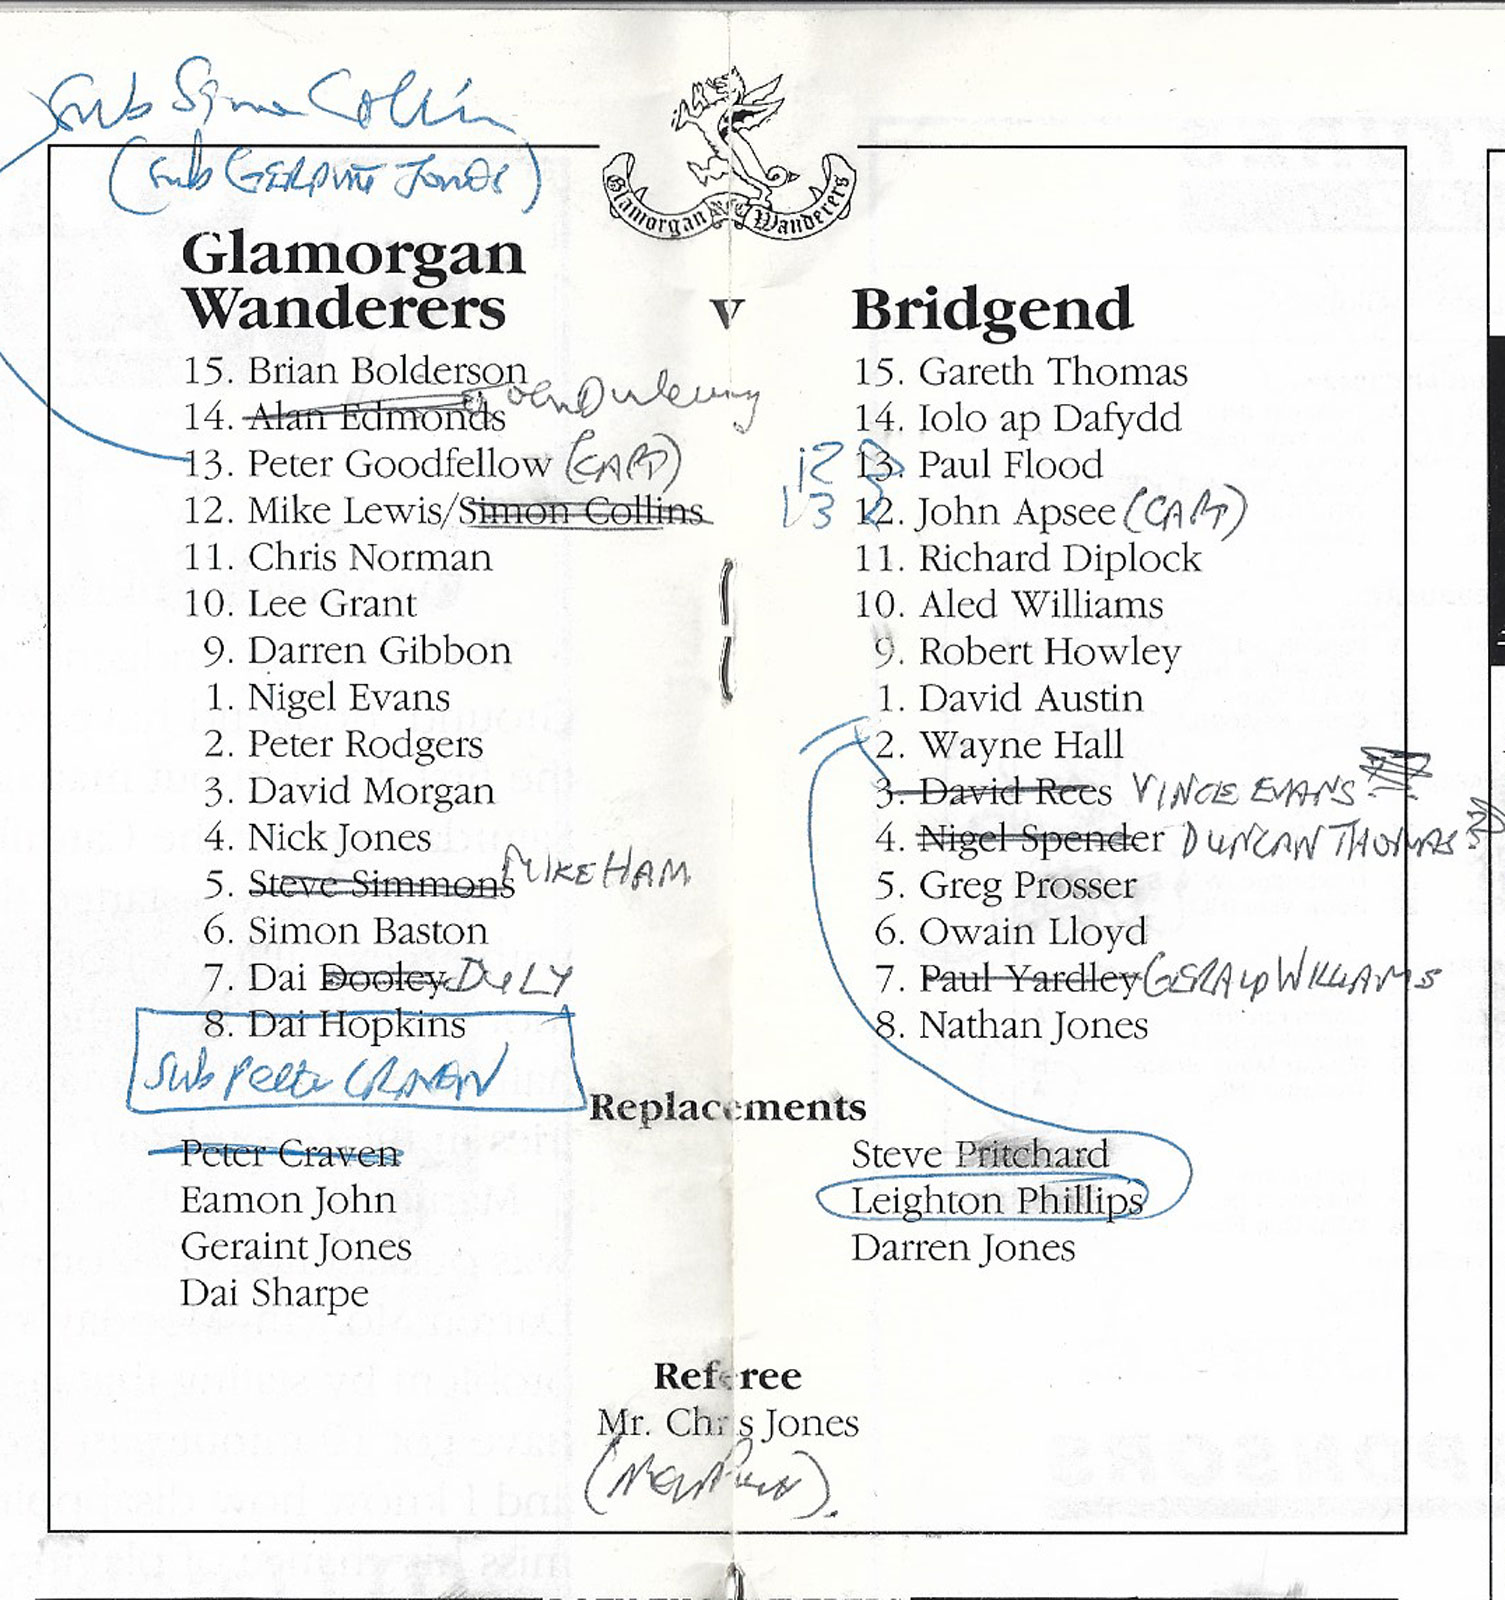 Sub Simon Collins
(Sub GERAINT JONES)
Glamorgan Wanderers
Glamorgan
Wanderers
v
Bridgend
15. Brian Bolderson
14. Alan Edmonds John
13. Peter Goodfellow (CAPT)
12. Mike Lewis/Simon Collins
11. Chris Norman
10. Lee Grant
9. Darren Gibbon
1. Nigel Evans
2. Peter Rodgers
3. David Morgan
4. Nick Jones
5. Steve Simmons MIKE HAM
6. Simon Baston
7. Dai Dooley DULY
8. Dai Hopkins
Sub Peter CRAVEN
15. Gareth Thomas
14. Iolo ap Dafydd
12 13. Paul Flood
13 12. John Apsee (CAPT)
11. Richard Diplock
10. Aled Williams
9. Robert Howley
1. David Austin
2. Wayne Hall
3. David Rees VINCE EVANS
4. Nigel Spender DUNCAN THOMAS
5. Greg Prosser
6. Owain Lloyd
7. Paul Yardley GERALD WILLIAMS
8. Nathan Jones
Replacements
Peter Craven
Eamon John
Geraint Jones
Dai Sharpe
Steve Pritchard
Leighton Phillips
Darren Jones
Referee
Mr. Chris Jones